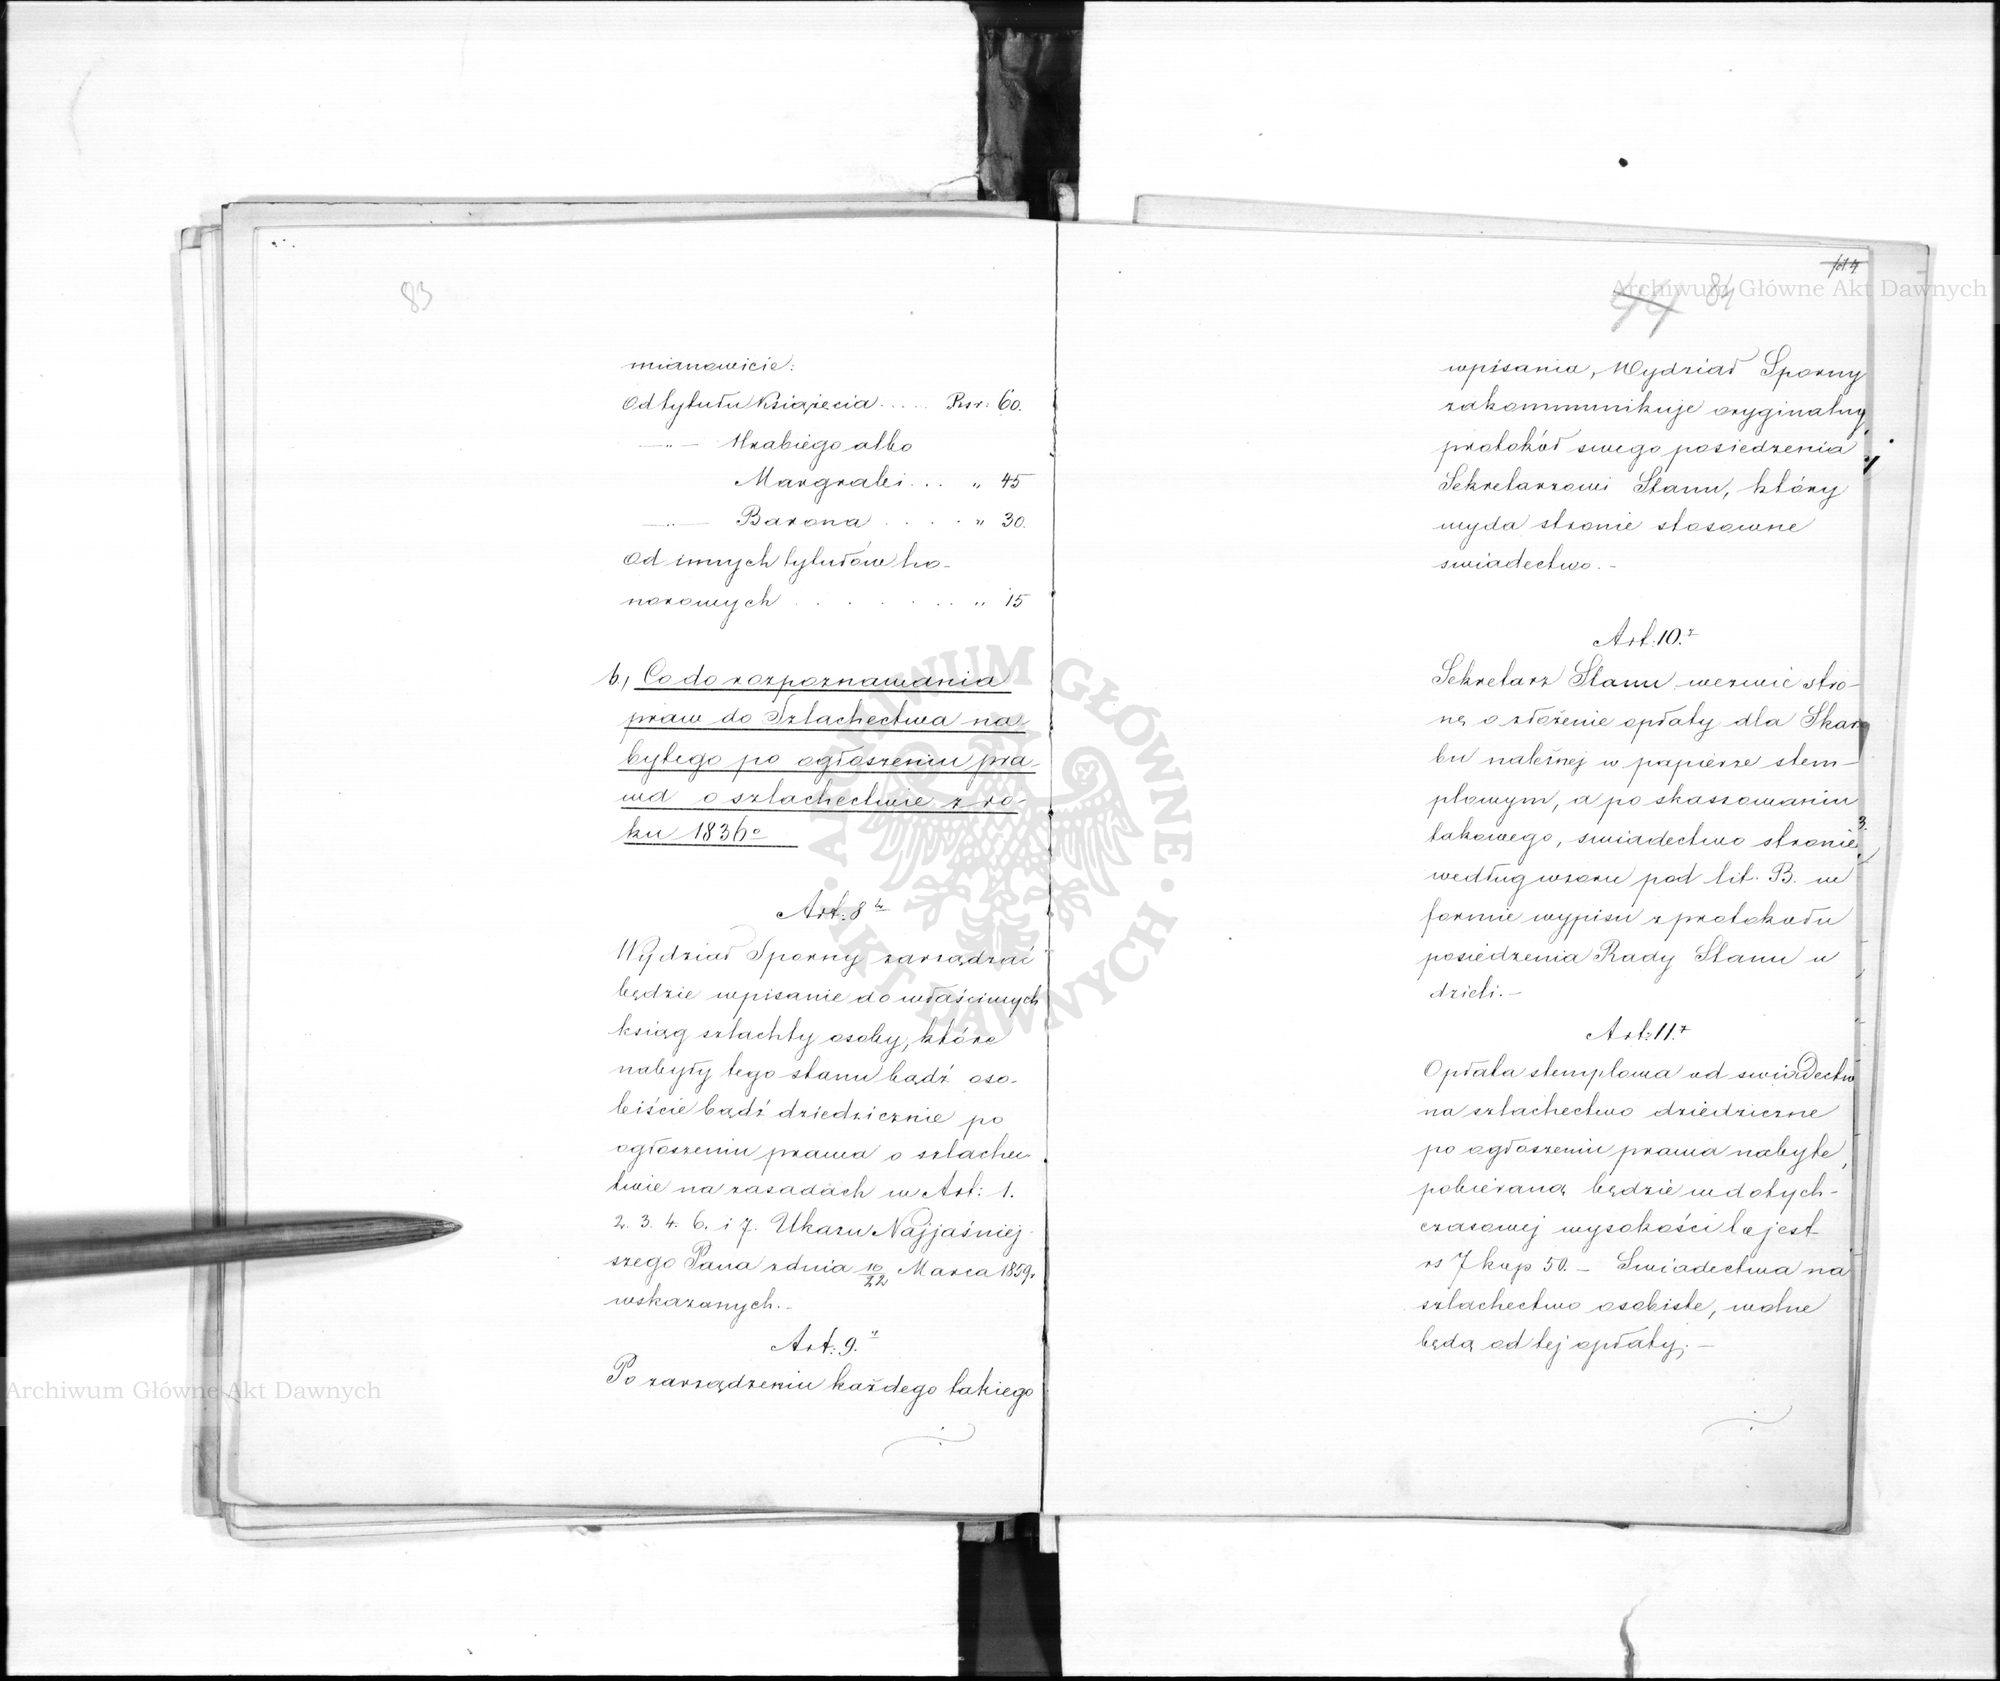 83
mianowicie:
Od tytułu Książecia ..... Rsr: 60.
—"— Hrabiego albo
Margrabi ... " 45
—"— Barona .... " 30.
Od innych tytułów ho-
norowych ........ " 15
b, Co do rozpoznawania
praw do Szlachectwa na-
bytego po ogłoszeniu pra-
wa o szlachectwie z ro-
ku 1836o
Art: 8
Wydział Sporny zarządzać
będzie wpisanie do właściwych
ksiąg szlachty osoby, które
nabyły tego stanu bądź oso-
biście bądź dziedzicznie po
ogłoszeniu prawa o szlachec-
twie na zasadach w Art: 1.
2. 3. 4. 6. i 7. Ukazu Najjaśniej-
szego Pana z dnia 10/22 Marca 1859r
wskazanych.-
Art: 9.
Po zarządzeniu każdego takiego
84
wpisania, Wydział Sporny
zakommunikuje oryginalny
protokół swego posiedzenia
Sekretarzowi Stanu, który
wyda stronie stosowne
swiadectwo.-
Art: 10.
Sekretarz Stanu wezwie stro-
nę o złożenie opłaty dla Skar-
bu należnej w papierze stem-
plowym, a po skassowaniu
takowego, swiadectwo stronie
według wzoru pod lit. B. w
formie wypisu z protokułu
posiedzenia Rady Stanu u
dzieli.-
Art: 11.
Opłata stemplowa od swiadectw
na szlachectwo dziedziczne
po ogłoszeniu prawa nabyte,
pobieraną będzie w dotych-
czasowej wysokości to jest
rs 7 kop 50.- Swiadectwa na
szlachectwo osobiste, wolne
będą od tej opłaty;-
Archiwum Główne Akt Dawnych
Archiwum Główne Akt Dawnych
ARCHIWUM GŁÓWNE AKT DAWNYCH